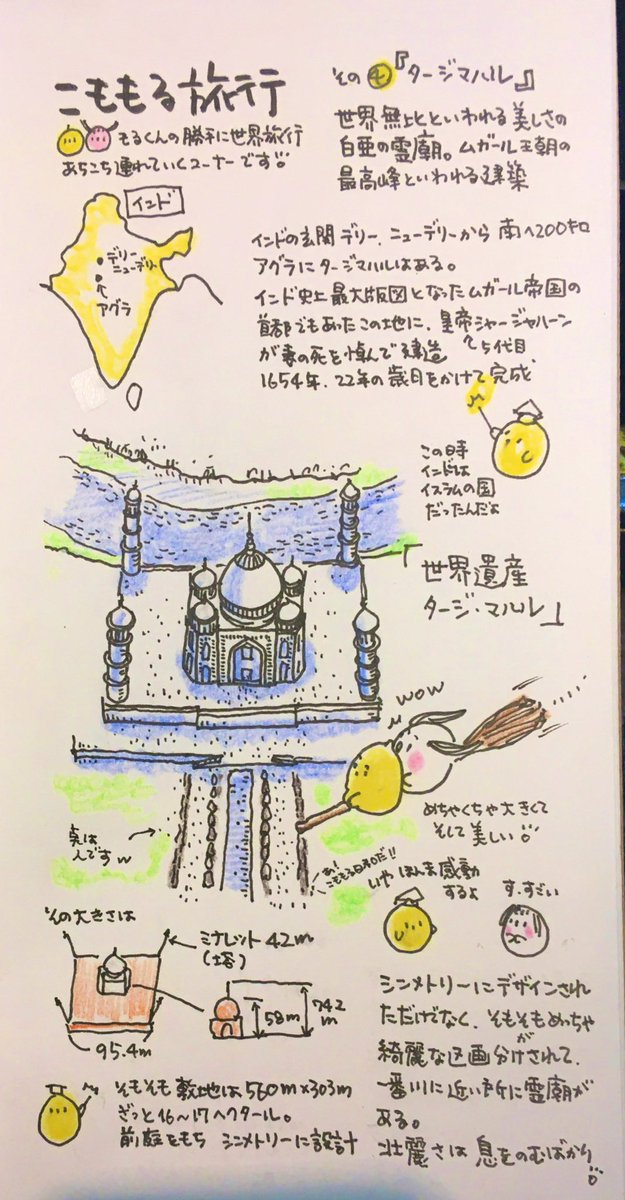 こももる旅行
もるくんの勝手に世界旅行
あちこち連れていくコーナーです
その④『タージマハル』
世界無比といわれる美しさの
白亜の霊廟。ムガール王朝の
最高峰といわれる建築
インド
デリー
ニューデリー
アグラ
インドの玄関デリー、ニューデリーから南へ200キロ
アグラにタージマハルはある。
インド史上最大版図となったムガール帝国の
首都でもあったこの地に、皇帝シャージャハーン
が妻の死を悼んで建造
5代目
1654年、22年の歳月をかけて完成
この時
インドは
イスラムの国
だったんだよ
「世界遺産
タージ・マハル」
WOW
めちゃくちゃ大きくて
そして美しい
点は
人ですw
あ!
こももる日和だ!!
いや ほんま感動
するよ
す、すごい
その大きさは
ミナレット42m
(塔)
58m
74.2
m
95.4m
シンメトリーにデザインされ
ただけでなく、そもそもめっちゃ
綺麗な区画分けがされてて
一番川に近い所に霊廟が
ある。
壮麗さは息をのむばかり
そもそも敷地は560m×303m
ざっと16〜17ヘクタール。
前庭をもち シンメトリーに設計